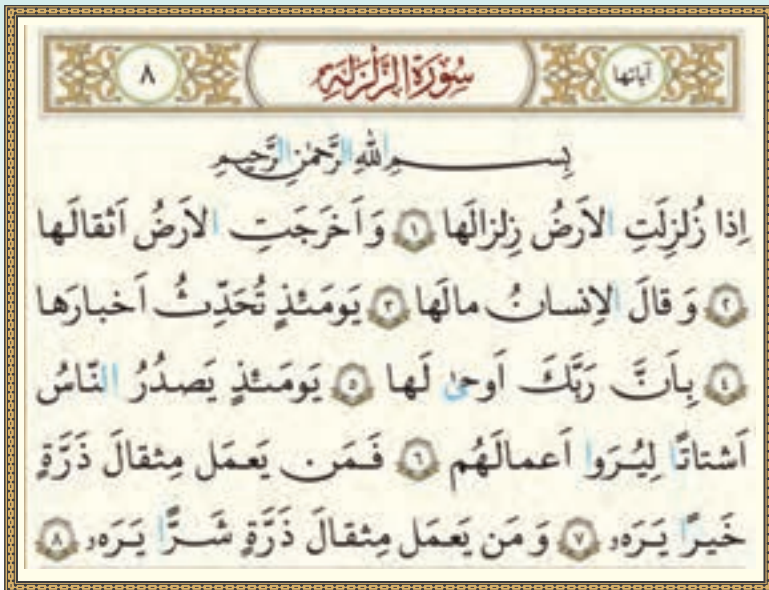 آیاتها سُورَةُ الزَّلزَلَةِ ٨
بِسمِ اللهِ الرَّحمٰنِ الرَّحیمِ
اِذا زُلزِلَتِ الاَرضُ زِلزالَها ١ وَ اَخرَجَتِ الاَرضُ اَثقالَها
٢ وَ قالَ الاِنسانُ مالَها ٣ یَومَئِذٍ تُحَدِّثُ اَخبارَها
٤ بِاَنَّ رَبَّكَ اَوحیٰ لَها ٥ یَومَئِذٍ یَصدُرُ النّاسُ
اَشتاتًا لِیُرَوا اَعمالَهُم ٦ فَمَن یَعمَل مِثقالَ ذَرَّةٍ
خَیرًا یَرَهۥ ٧ وَ مَن یَعمَل مِثقالَ ذَرَّةٍ شَرًّا یَرَهۥ ٨